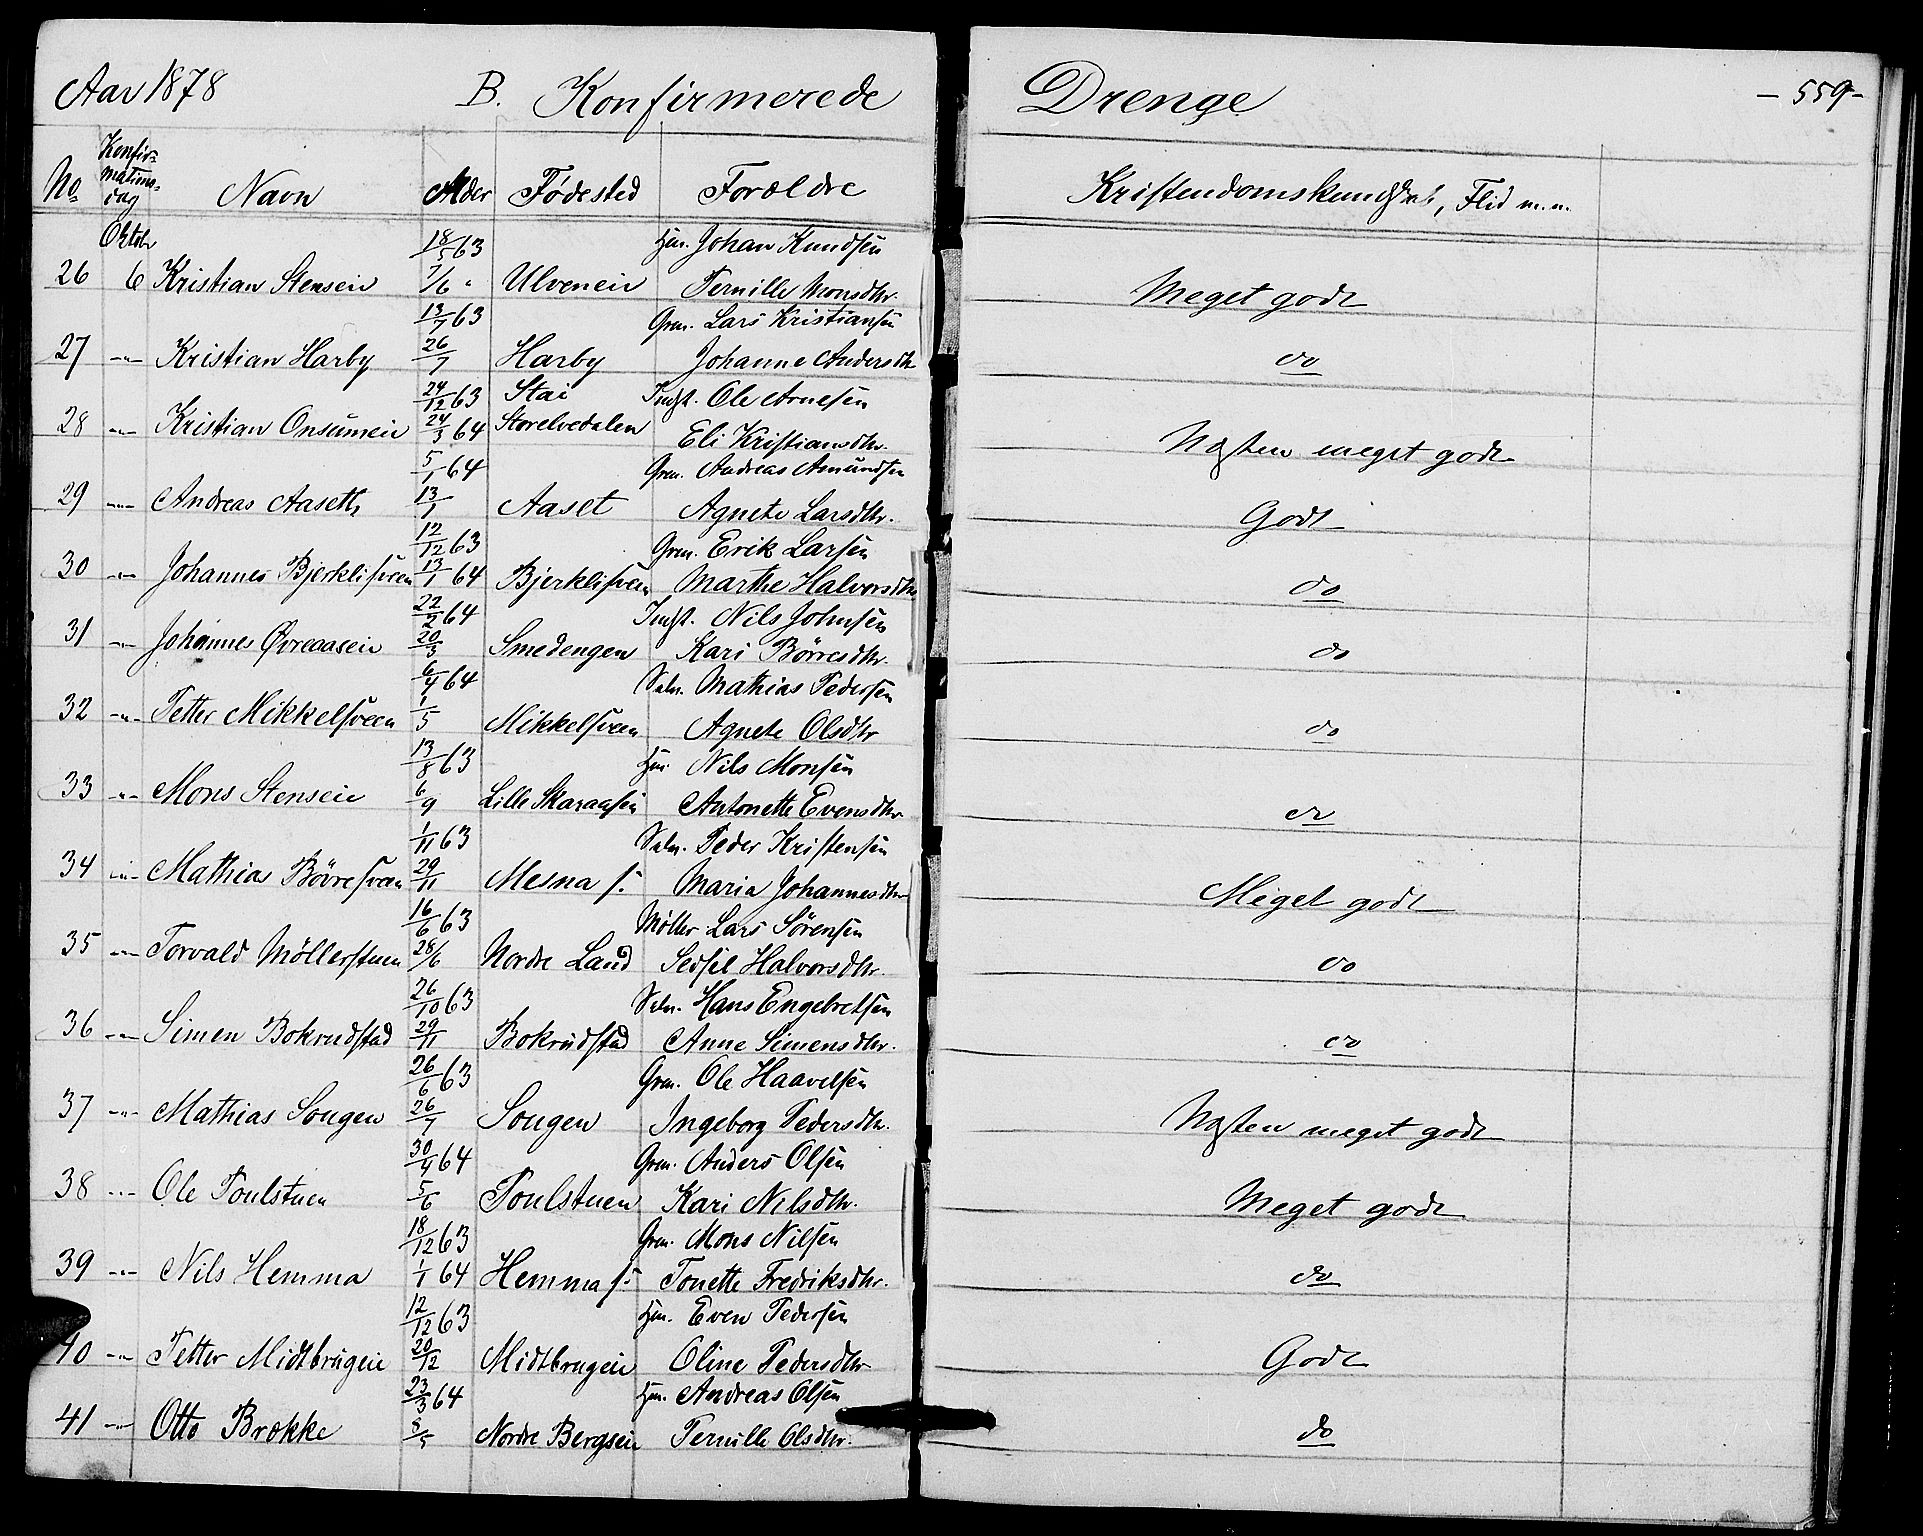 Aar 1878 B. Konfirmerede Drenge - 559 -
No Konfirmations dag Navn Alder Fødested Forældre Kristendomskundskab, Flid m.m.
Oktob 18/5 63 Hm. Johan Knudsen
26 6 Kristian Stenseie 7/6 " Ulveneie Pernille Monsdtr. Meget godt
13/7 63 Grm. Lars Kristiansen
27 -"- Kristian Harby 26/7 Harby Johanne Andersdtr do
24/12 63 Stai Indst. Ole Arnesen
28 -"- Kristian Onsumeie 24/3 64 Storelvedalen Eli Kristiansdtr. Næsten meget godt
5/1 64 Grm. Andreas Amundsen
29 -"- Andreas Aaseth 13/1 Aaset Agnete Larsdtr. Godt
12/12 63 Grm. Erik Larsen
30 -"- Johannes Bjerklisveen 13/1 64 Bjerklisveen Marthe Halvorsdtr do
22/2 64 Indst. Nils Johnsen
31 -"- Johannes Øvreaaseie 20/3 Smedengen Kari Börresdtr. do
6/4 64 Selv. Mathias Pedersen
32 -"- Petter Mikkelsveen 1/5 Mikkelsveen Agnete Olsdtr do
13/8 63 Hm. Nils Monsen
33 -"- Mons Stenseie 6/9 Lille Skaraasen Antonette Evensdtr do
1/11 63 Selv. Peder Kristensen
34 -"- Mathias Börresveen 29/11 Mesna s. Maria Johannesdtr Meget godt
16/6 63 Möller Lars Sörensen
35 -"- Torvald Möllerstuen 28/6 Nordre Land Sedsil Halvorsdtr. do
26/10 63 Selv. Hans Engebretsen
36 -"- Simen Bokrudstad 29/11 Bokrudstad Anne Simensdtr. do
26/6 63 Grm. Ole Haavelsen
37 -"- Mathias Sougen 26/7 Sougen Ingeborg Pedersdtr. Næsten meget godt
30/4 64 Grm. Anders Olsen
38 -"- Ole Poulstuen 5/6 Poulstuen Kari Nilsdtr. Meget godt
18/12 63 Grm. Mons Nilsen
39 -"- Nils Hemma 1/1 64 Hemma s. Tonette Fredriksdtr. do
12/12 63 Hm. Even Pedersen
40 -"- Petter Midtbrugeie 20/12 Midtbrugeie Oline Pedersdtr Godt
23/3 64 Hm. Andreas Olsen
41 -"- Otto Brække 8/5 Nordre Bergseie Pernille Olsdtr. do